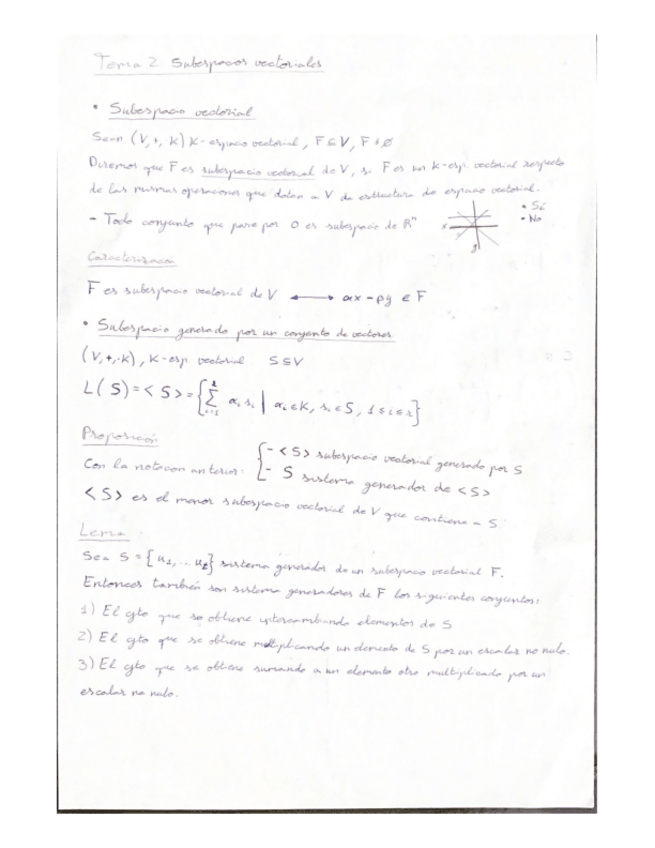 Tema 2 Subespacios vectoriales
• Subespacio vectorial
Sean (V,+, K) K-espacio vectorial, F⊆V, F≠∅
Diremos que F es subespacio vectorial de V, si F es un K-esp. vectorial respecto
de las mismas operaciones que dotan a V de estructura de espacio vectorial.
- Todo conjunto que pasa por 0 es subespacio de Rⁿ
x
y
• Sí
• No
Caracterización
F es subespacio vectorial de V ⟷ αx - βy ∈ F
• Subespacio generado por un conjunto de vectores
(V,+,·K), K-esp. vectorial S⊆V
L(S)=<S>={∑ αᵢsᵢ | αᵢ∈K, sᵢ∈S, 1≤i≤r}
Proposición
Con la notacion anterior: {- <S> subespacio vectorial generado por S
- S sistema generador de <S>
<S> es el menor subespacio vectorial de V que contiene a S.
Lema
Sea S = {u₁,... } sistema generador de un subespacio vectorial F.
Entonces también son sistema generadores de F los siguientes conjuntos:
1) El cjto que se obtiene intercambiando elementos de S
2) El cjto que se obtiene multiplicando un elemento de S por un escalar no nulo.
3) El cjto que se obtiene sumando a un elemento otro multiplicado por un
escalar no nulo.